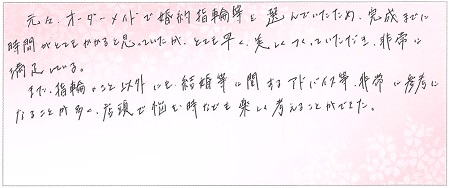 元々、オーダーメイドで婚約指輪等を選んでいたため、完成までに
時間がとてもかかると思っていたが、とても早く、美しくつくっていただき、非常に
満足している。
また、指輪のこと以外にも、結婚等に関するアドバイス等、非常に参考に
なることが多く、店頭で悩む時なども楽しく考えることができた。